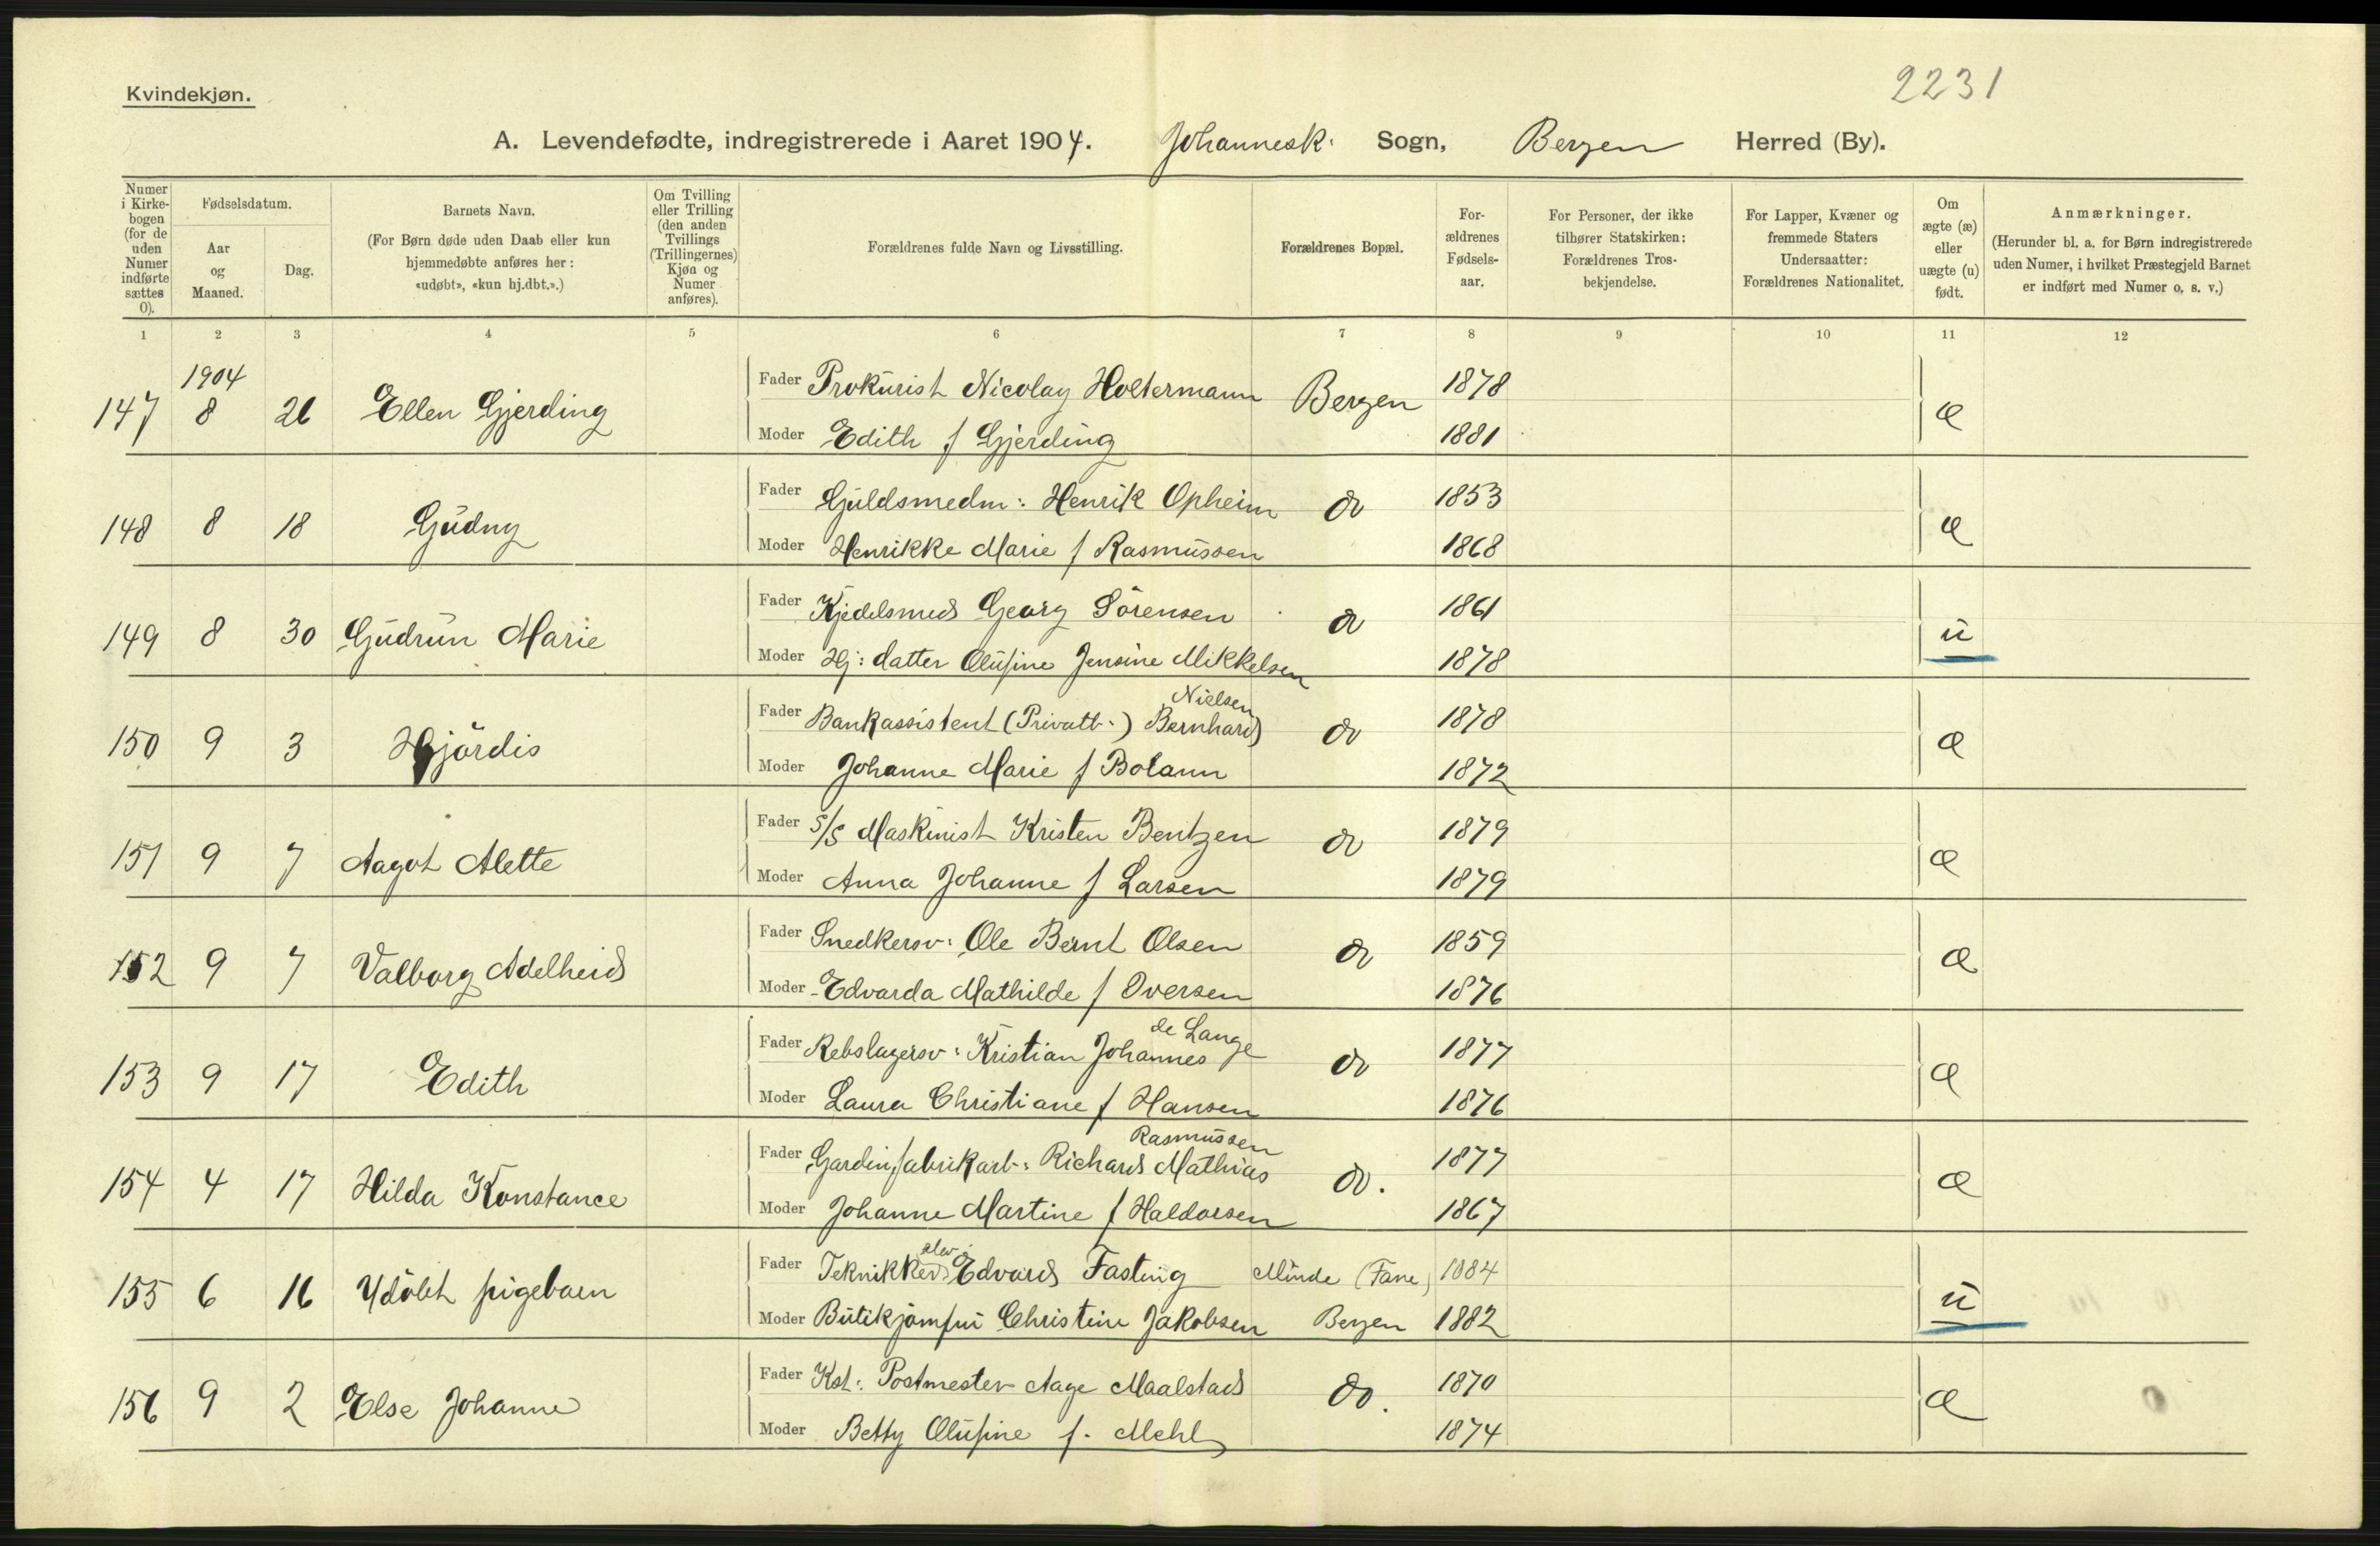 2231
Kvindekjøn.
A. Levendefødte, indregistrerede i Aaret 1904. Johannesk: Sogn, Bergen Herred (By).
Numer i Kirkebogen (for de uden Numer indførte sættes 0).
Fødselsdatum.
Aar og Maaned.
Dag.
Barnets Navn.
(For Børn døde uden Daab eller kun hjemmedøbte anføres her: «udøbt», «kun hj.dbt.».)
Om Tvilling eller Trilling (den anden Tvillings (Trillingernes) Kjøn og Numer anføres).
Forældrenes fulde Navn og Livsstilling.
Forældrenes Bopæl.
Forældrenes Fødselsaar.
For Personer, der ikke tilhører Statskirken: Forældrenes Trosbekjendelse.
For Lapper, Kvæner og fremmede Staters Undersaatter: Forældrenes Nationalitet.
Om ægte (æ) eller uægte (u) født.
Anmærkninger.
(Herunder bl. a. for Børn indregistrerede uden Numer, i hvilket Præstegjeld Barnet er indført med Numer o. s. v.)
1 2 3 4 5 6 7 8 9 10 11 12
1904
147 8 26 Ellen Gjerding Fader Prokurist Nicolay Holtermann Bergen 1878 æ
Moder Edith f Gjerding 1881
148 8 18 Gudny Fader Guldsmedm: Henrik Opheim do 1853 æ
Moder Henrikke Marie f Rasmussen 1868
149 8 30 Gudrun Marie Fader Kjedelsmed Georg Sörensen do 1861 u
Moder Hj: datter Olufine Jensine Mikkelsen 1878
150 9 3 Hjördis Fader Bankassistent (Privatb:) Bernhard Nielsen do 1878 æ
Moder Johanne Marie f Bolann 1872
151 9 7 Aagot Alette Fader S/S Maskinist Kristen Bentzen do 1879 æ
Moder Anna Johanne f Larsen 1879
152 9 7 Valborg Adelheid Fader Snedkersv: Ole Bernt Olsen do 1859 æ
Moder Edvarda Mathilde f Iversen 1876
153 9 17 Edith Fader Rebslagersv: Kristian Johannes de Lange do 1877 æ
Moder Laura Christiane f Hansen 1876
154 4 17 Hilda Konstance Fader Gardinfabrikarb: Richard Mathias Rasmussen do. 1877 æ
Moder Johanne Martine f Haldorsen 1867
155 6 16 Udöbt pigebarn Fader Teknikker elev Edvard Fasting Minde (Fane) 1884 u
Moder Butikjomfru Christine Jakobsen Bergen 1882
156 9 2 Else Johanne Fader Kst: Postmester Aage Maalstad do. 1870 æ
Moder Betty Olufine f. Mehl 1874